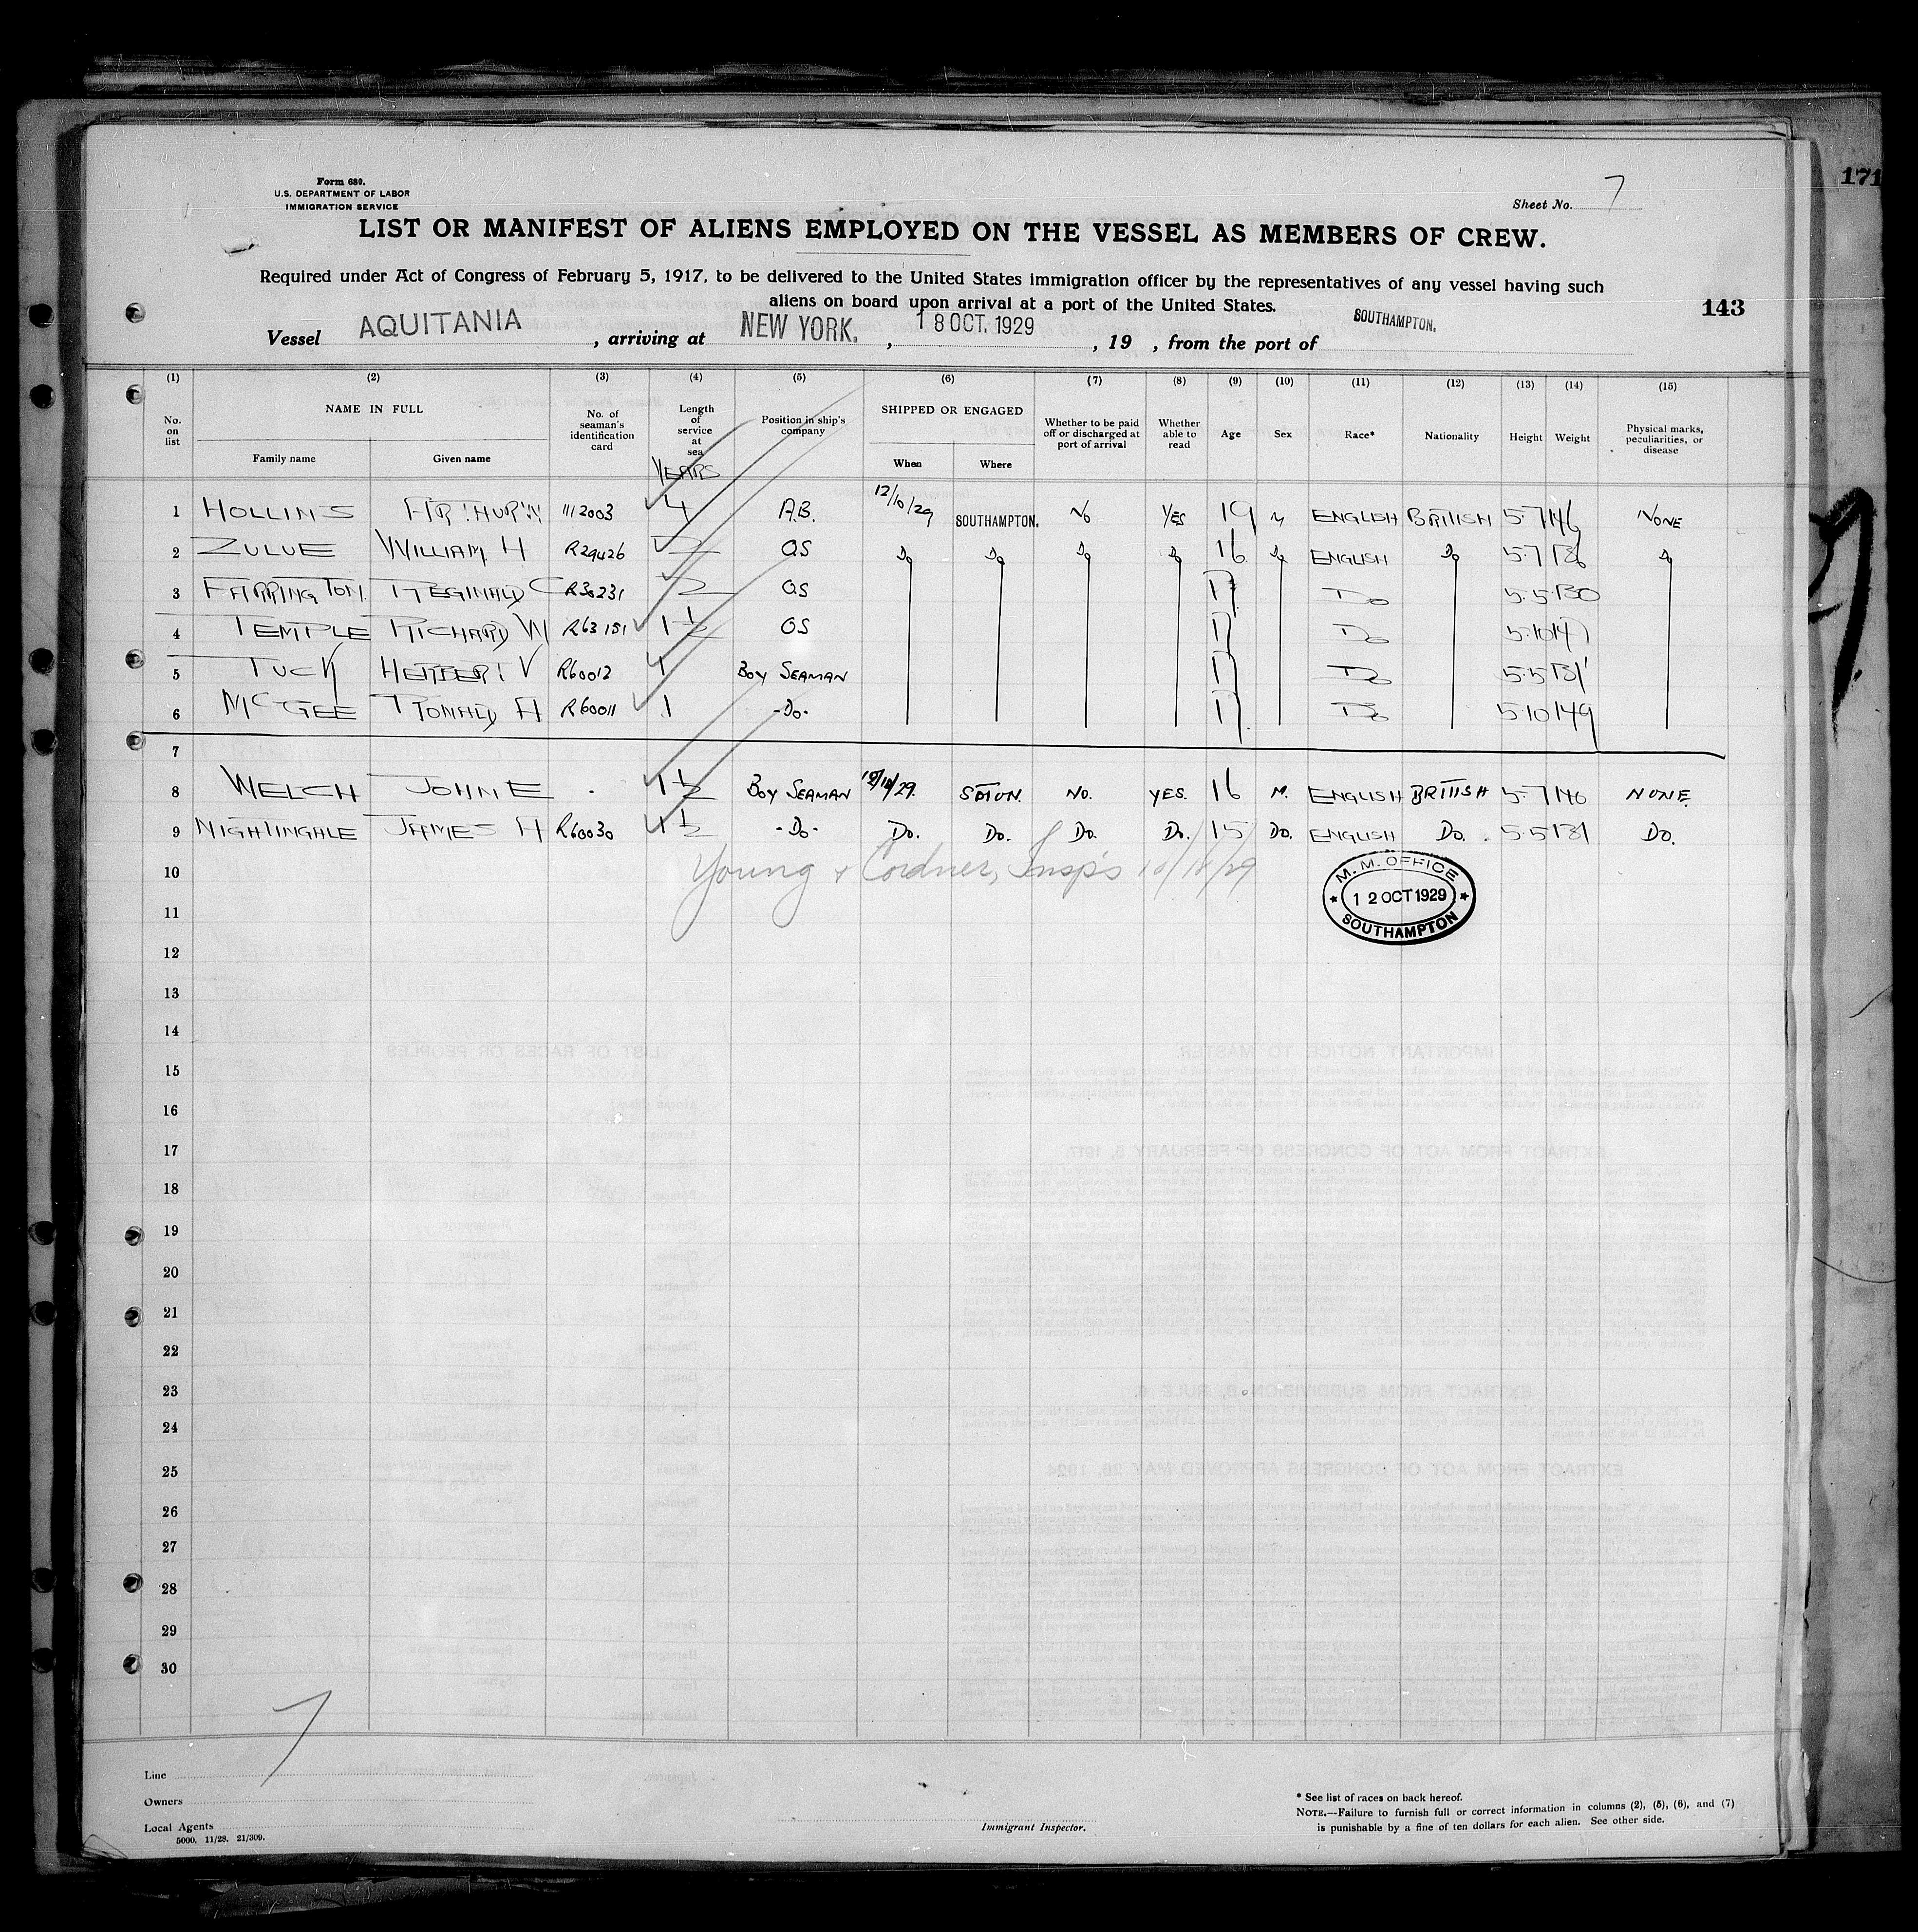 171
Form 680.
U.S. DEPARTMENT OF LABOR
IMMIGRATION SERVICE
Sheet No. 7
LIST OR MANIFEST OF ALIENS EMPLOYED ON THE VESSEL AS MEMBERS OF CREW.
Required under Act of Congress of February 5, 1917, to be delivered to the United States immigration officer by the representatives of any vessel having such
aliens on board upon arrival at a port of the United States.
143
Vessel AQUITANIA, arriving at NEW YORK. , 18 OCT. 1929, 19 , from the port of SOUTHAMPTON.
(1) (2) (3) (4) (5) (6) (7) (8) (9) (10) (11) (12) (13) (14) (15)
No. on list NAME IN FULL Family name Given name No. of seaman's identification card Length of service at sea YEARS Position in ship's company SHIPPED OR ENGAGED When Where Whether to be paid off or discharged at port of arrival Whether able to read Age Sex Race* Nationality Height Weight Physical marks, peculiarities, or disease
1 HOLLINS ARTHUR W 112003 4 A.B. 12/10/29 SOUTHAMPTON. No YES 19 M ENGLISH BRITISH 5.7 146 NONE
2 ZULUE WILLIAM H R29426 2 OS Do Do Do Do 16 Do ENGLISH Do 5.7 136 Do
3 FARRINGTON. REGINALD C R30231 2 OS 17 Do 5.5 130
4 TEMPLE RICHARD W R63151 1½ OS 17 Do 5.10 147
5 TUCK HERBERT V R60012 1 BOY SEAMAN 17 Do 5.5 131
6 McGEE RONALD A R60011 1 -Do- 17 Do 5.10 149
7
8 WELCH JOHN E - 1½ BOY SEAMAN 12/10/29. SOTON. NO. YES. 16 M. ENGLISH BRITISH 5.7 140 NONE.
9 NIGHTINGALE JAMES A R60030 1½ -Do- Do. Do. Do. Do. 15 Do. ENGLISH Do. 5.5 131 Do.
Young & Cordner, Insp's 10/18/29
10
M. M. OFFICE
12 OCT 1929
SOUTHAMPTON
11
12
13
14
15
16
17
18
19
20
21
22
23
24
25
26
27
28
29
30
7
Line
Owners
Local Agents
5000. 11/28. 21/309.
Immigrant Inspector.
* See list of races on back hereof.
NOTE.—Failure to furnish full or correct information in columns (2), (5), (6), and (7)
is punishable by a fine of ten dollars for each alien. See other side.